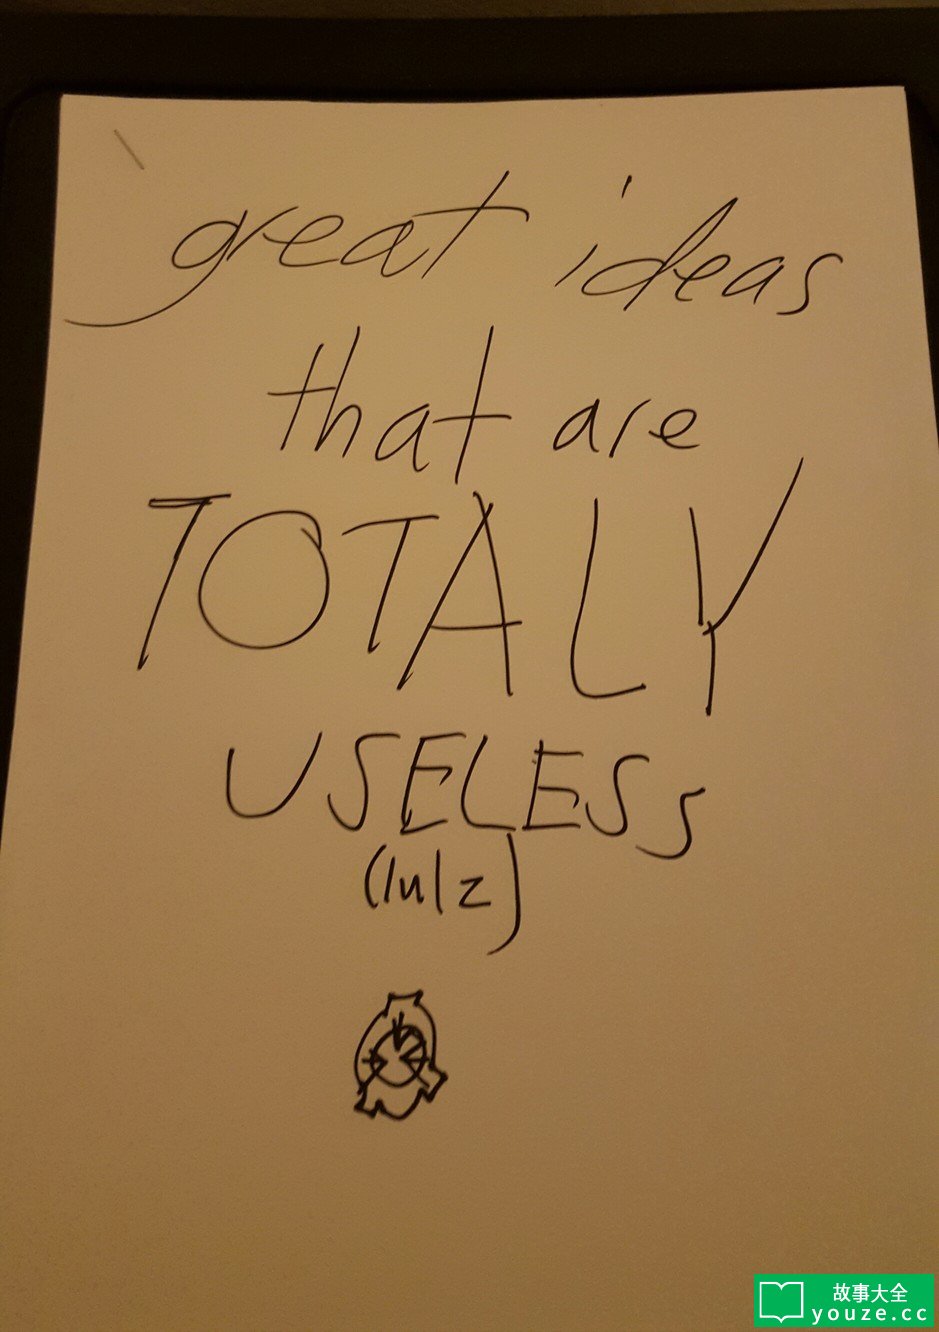 great ideas
that are
TOTALY
USELESS
(lulz)
故事大全
youze.cc